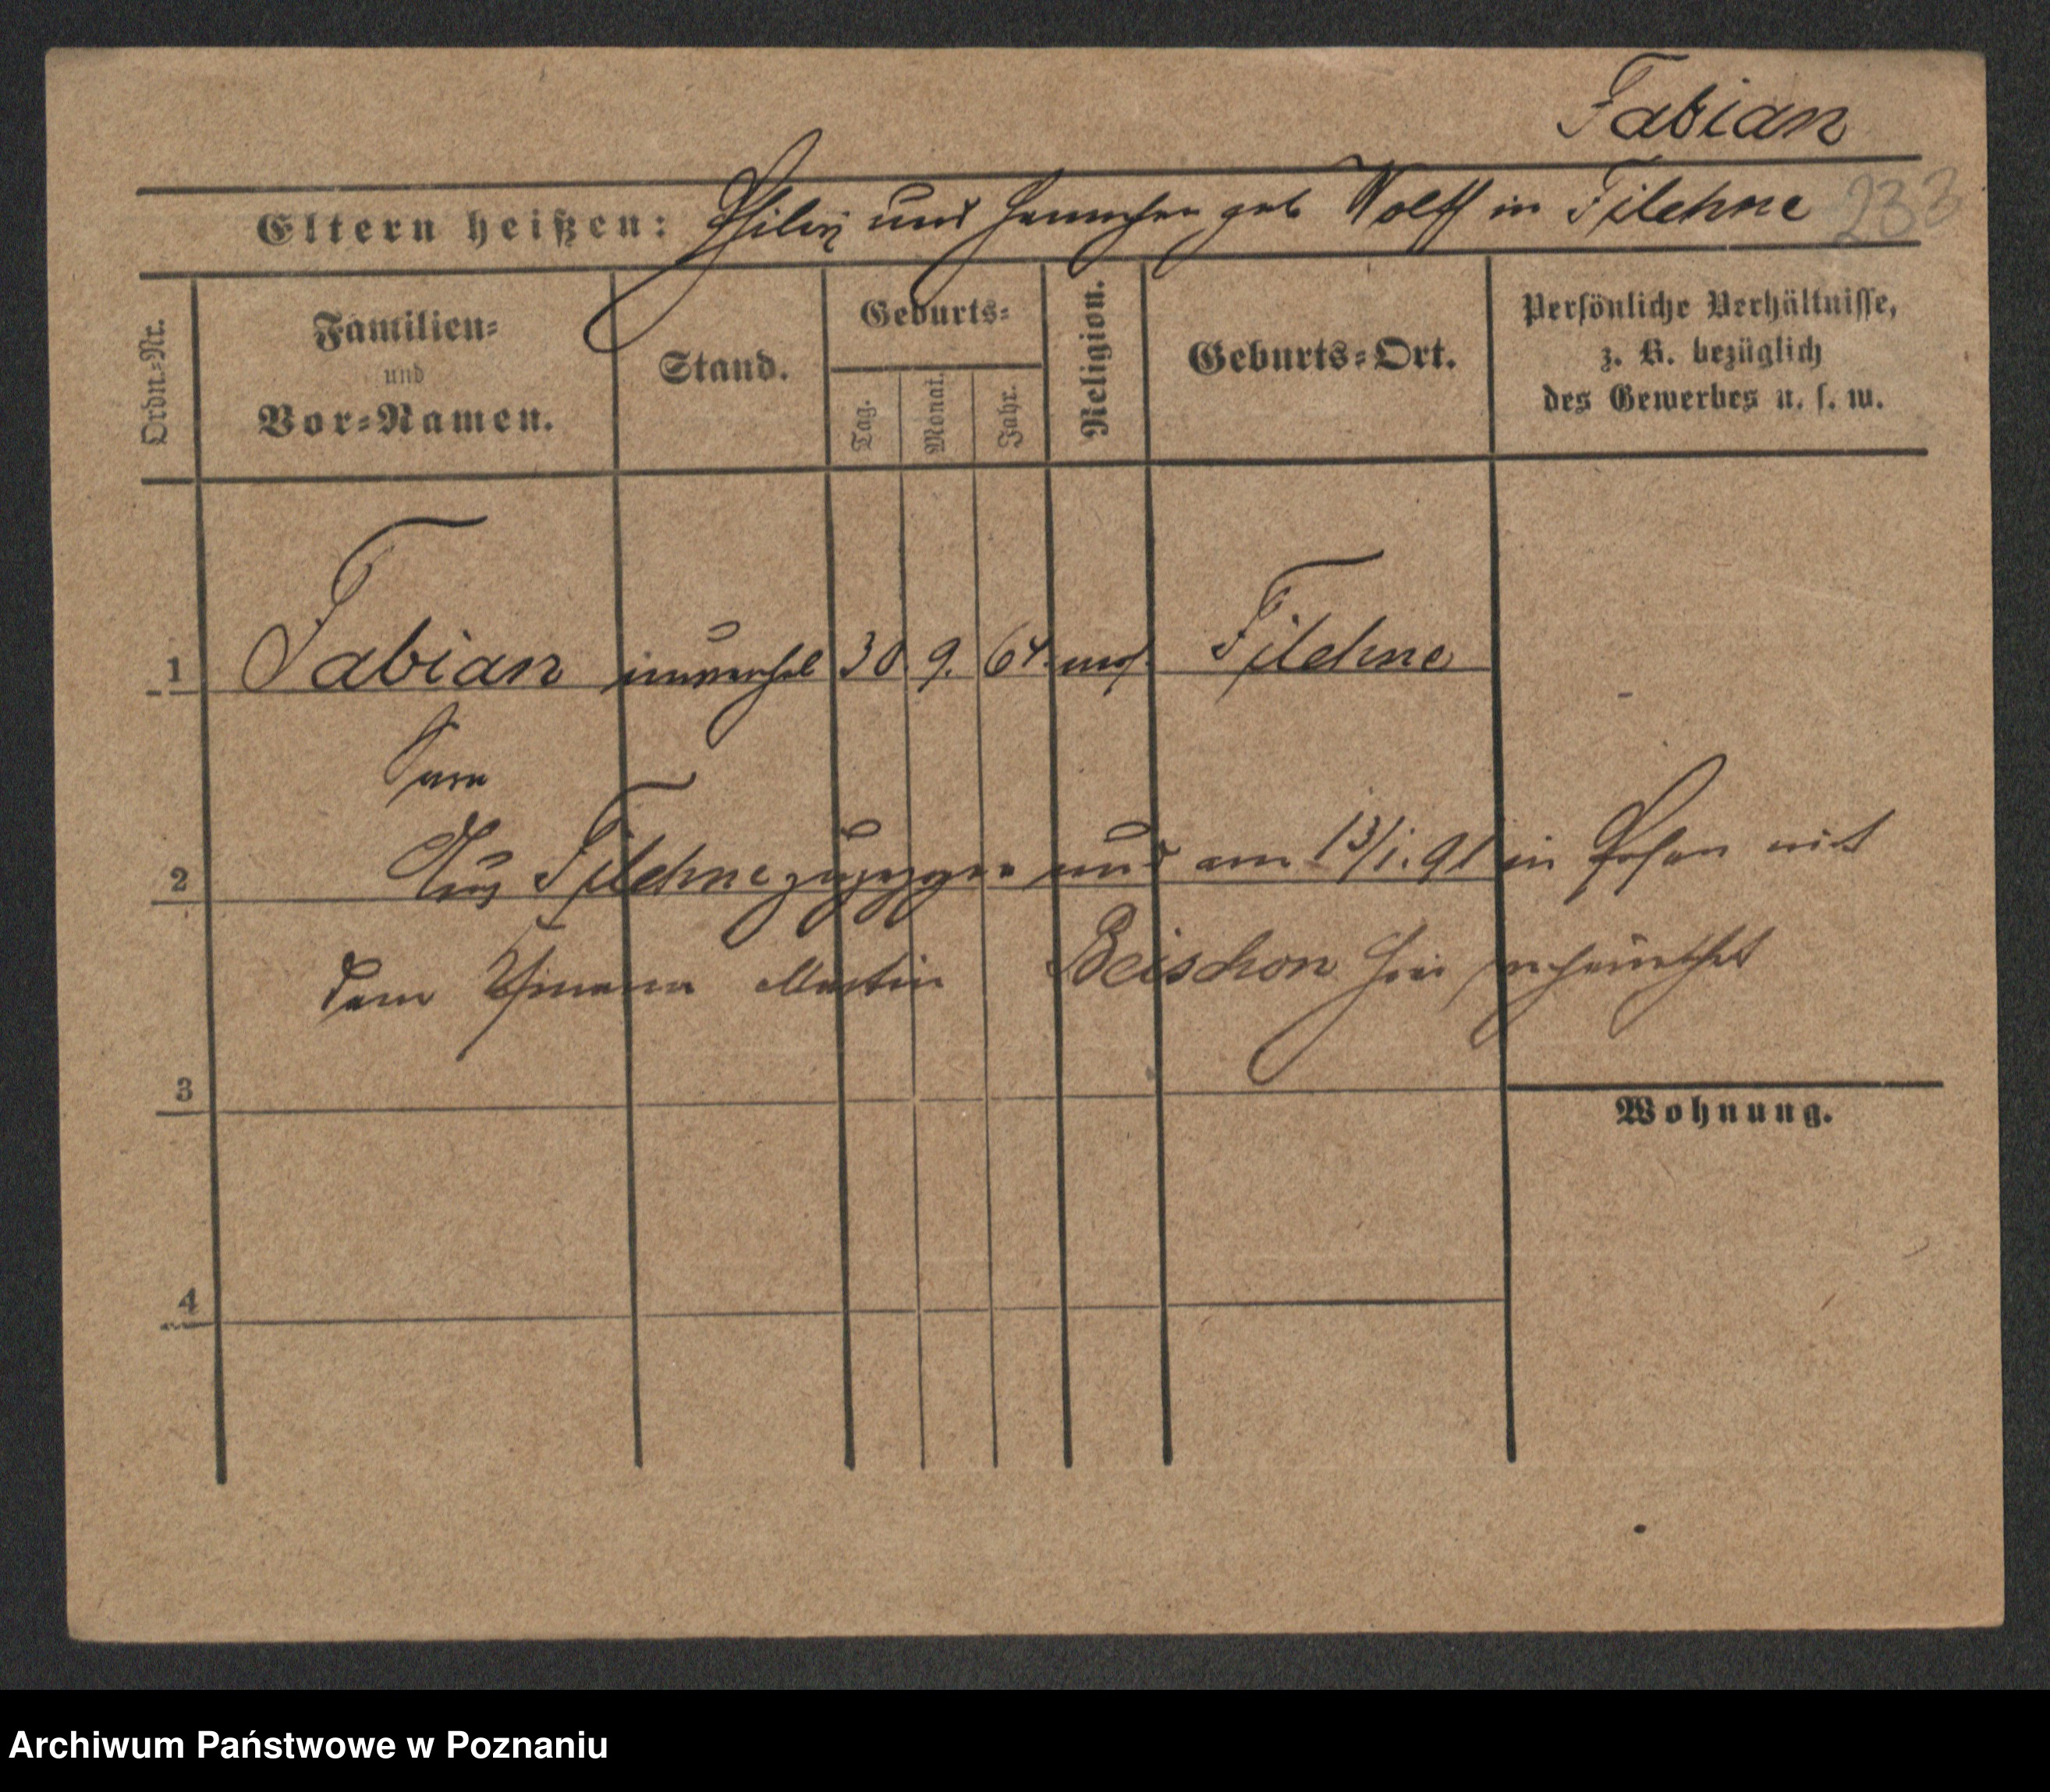 Fabian
Eltern heißen: Philipp und Hannchen geb Wolff in Filehne 233
Ordn.-Nr.
Familien- und Vor-Namen.
Stand.
Geburts-
Tag.
Monat.
Jahr.
Religion.
Geburts-Ort.
Persönliche Verhältnisse,
z. B. bezüglich
des Gewerbes u. s. w.
1 Fabian unverehel 30 9. 64. mos. Filehne
Sara
2 Aus Filehne zugezogen und am 13/1. 91 in Posen mit
dem Martin Beischon hier verheirathet
3
Wohnung.
4
Archiwum Państwowe w Poznaniu